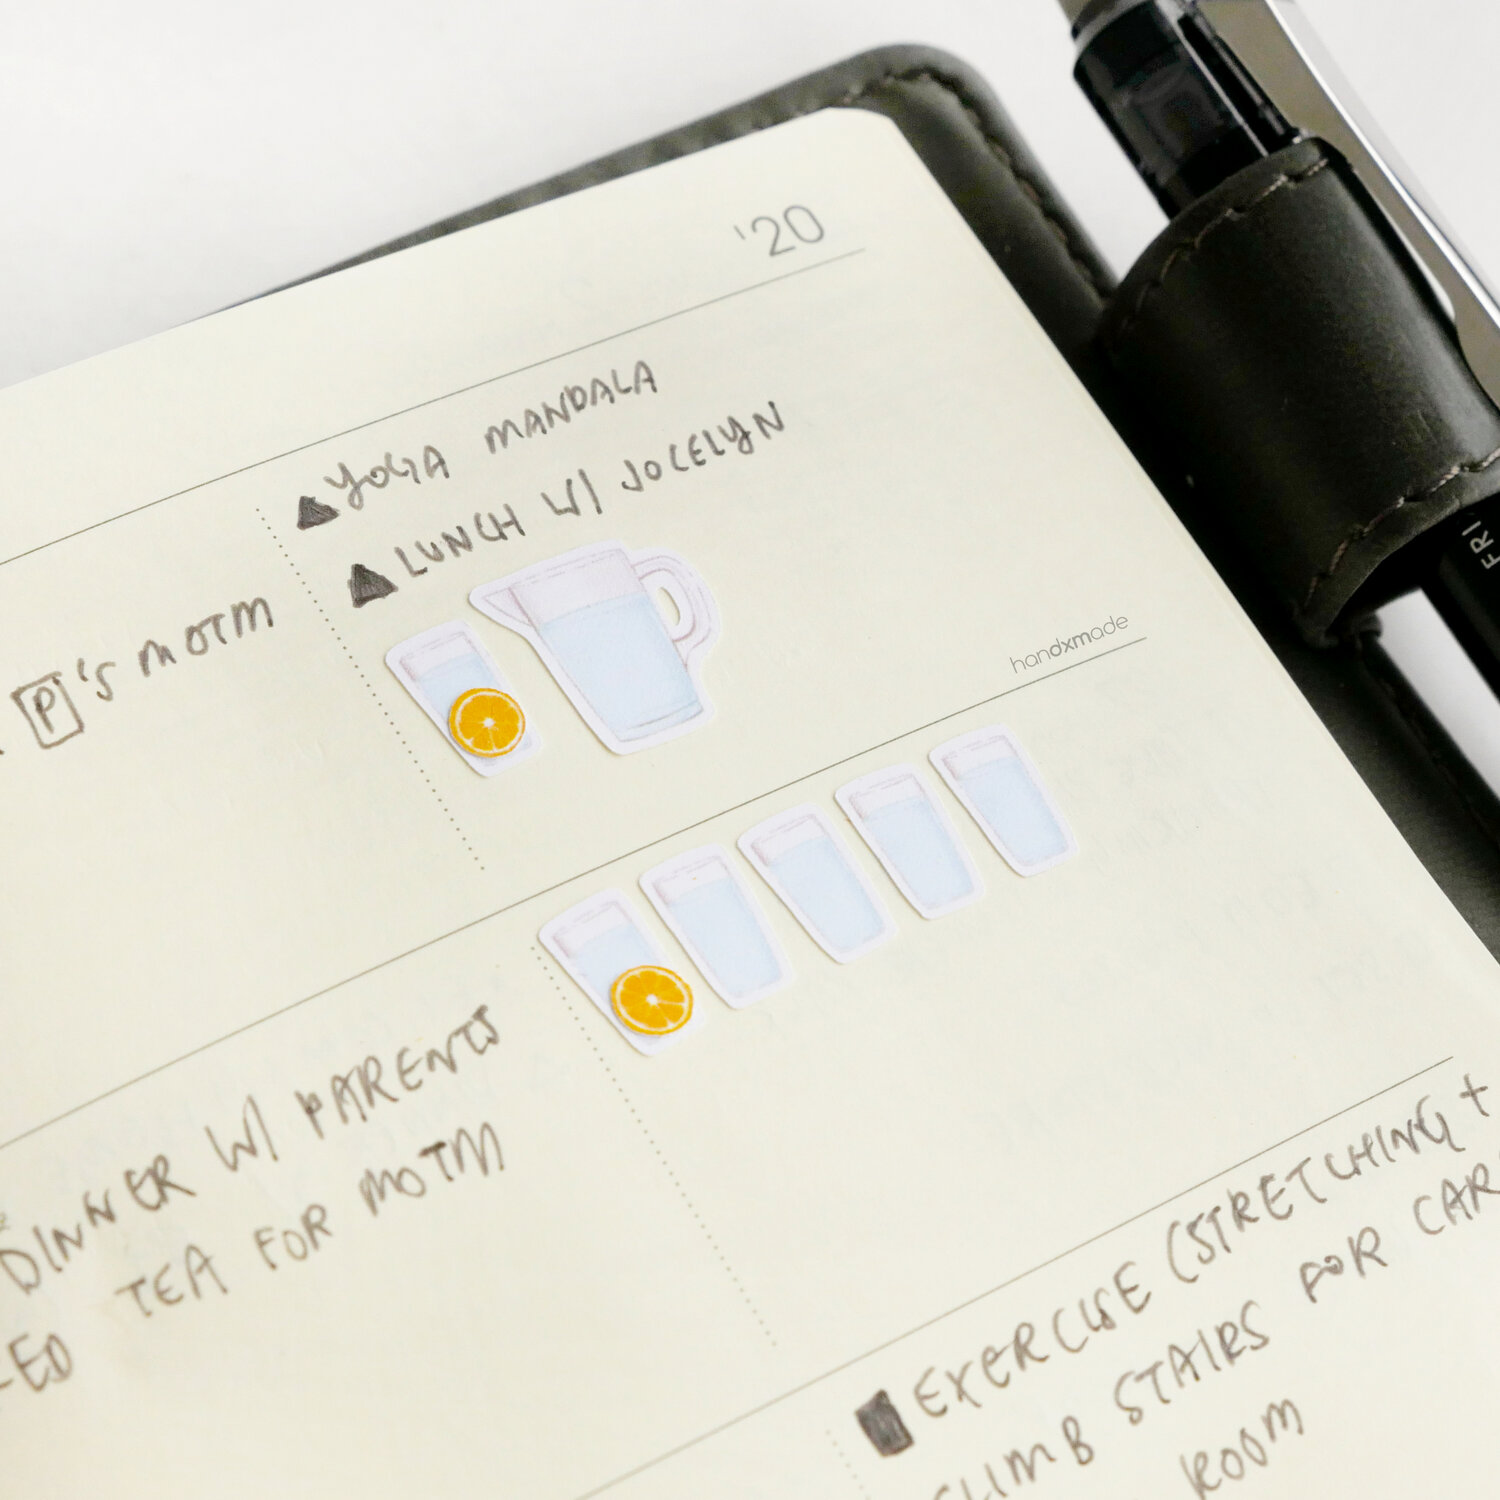 '20
▲YOGA MANDALA
▲LUNCH W/ JOCELYN
P's MOTM
handxmade
DINNER W/ PARENTS
TEA FOR MOTM
EXERCISE (STRETCHING +
CLIMB STAIRS FOR
ROOM
FRI